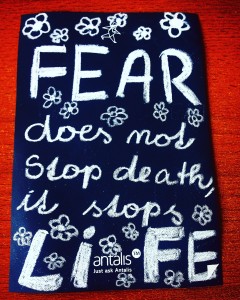 FEAR
does not
Stop death,
it stops
LiFE
antalis™
Just ask Antalis